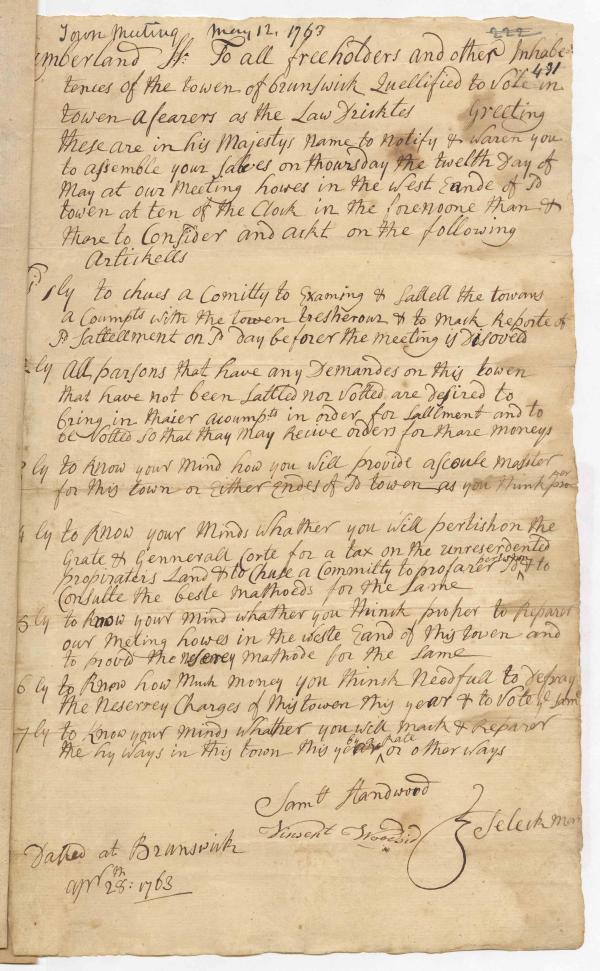 Town Meeting May 12, 1763
222
431
umberland Ss: To all freeholders and other Inhabe
tences of the town of brunswick Quellified to Vote in
towen afearers as the Law Dricktes Greeting
these are in his Majestys Name to Notify & waren you
to assemble your salves on thoursday the twelth Day of
May at our Meeting howes in the west Eande of sd
towen at ten of the Clock in the forenoone than &
thare to Consider and ackt on the following
Artickells
1 ly to chues a Comitty to Examing & Sattell the towans
a Coumpts with the towen tresherour & to Mack Reporte of
sd Sattellment on sd day beforer the meeting is Disoved
2 ly All parsons that have any Demandes on this towen
that have not been Sattled nor Votted are desired to
bring in thaier acoumpts in order for Sattlment and to
be Votted so that thay May Recive orders for thare moneys
3 ly to Know your Mind how you will provide a scoule Master
for this town or Either Endes of sd towen as you think pro
per
4 ly to Know your Minds Whather you will pertishon the
Grate & Gennerall Corte for a tax on the unreserdented
propiraters Land & to Chuse a Committy to prosarer sd & to
Consulte the beste Mathoeds for the Same
5 ly to Know your mind whather you thinck proper to Reparer
our Meting howes in the weste Eand of this towen and
to provid the Neserey Mathode for the Same
6 ly to Know how Much Money you thinsk Needfull to Defray
the Neserrey Charges of this towen this year & to Vote ye Sam
7 ly to Know your minds Whather you will Mack & Reparer
the hy ways in this town this year by a Rate or other ways
Samll Standwood
Vincent Woodsid
Seleck Men
Dated at Brunswick
aprll 28th: 1763